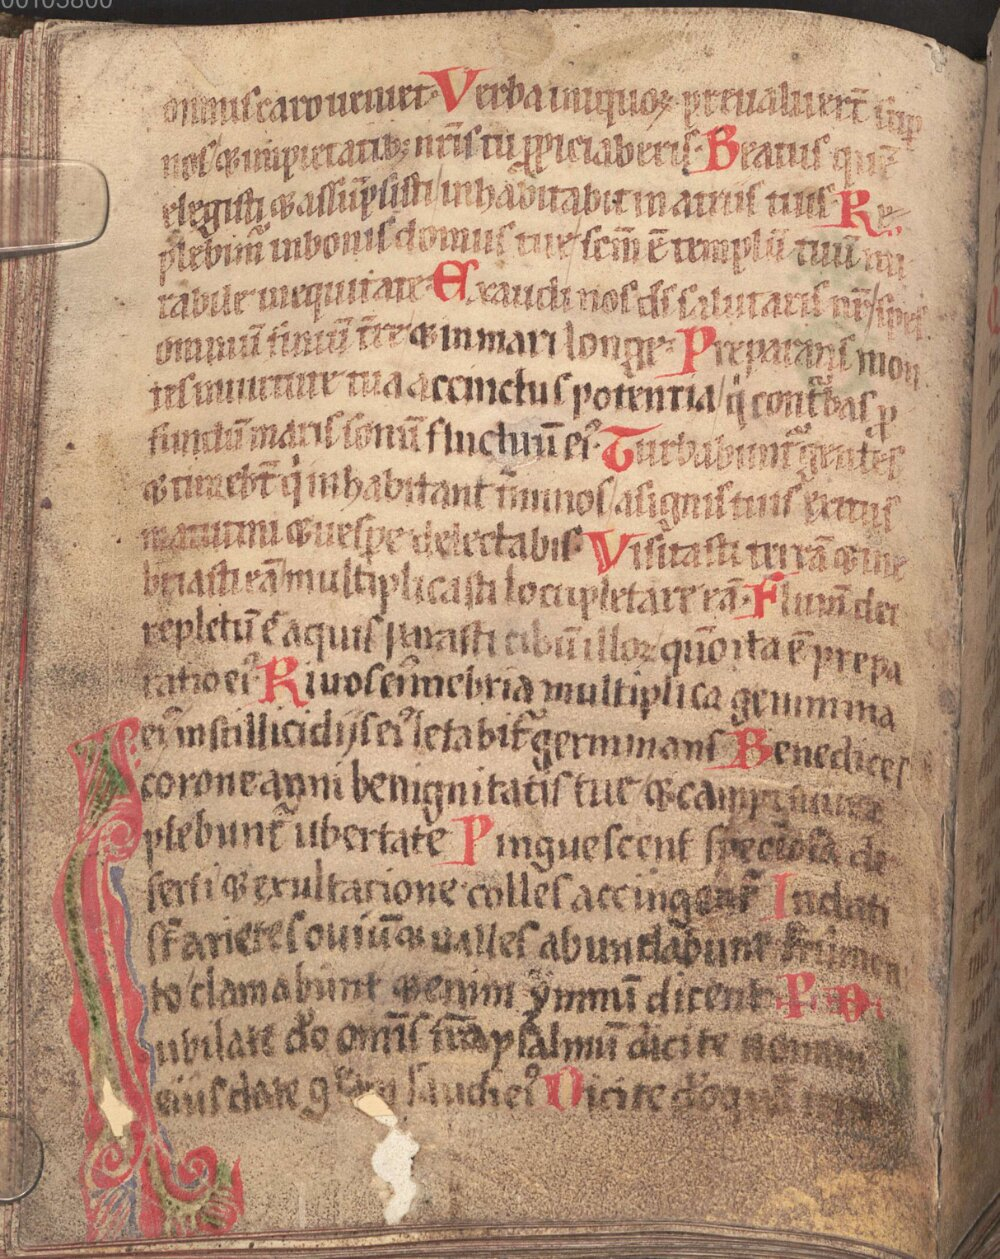 00105800
omnis caro ueniet· Verba iniquoꝝ preualuer̄t sup
nos / ⁊ impietatibꝫ nr̄is tu ꝓpiciaberis· Beatus quē
elegisti ⁊ assūpsisti inhabitabit in atriis tuis· Re
plebim̄ in bonis domus tue / scm̄ ē templū tuū mi
rabile in equitate· Exaudi nos ds̄ salutaris nr̄ / spes
omniū finiū tr̄e ⁊ in mari longe· Preparans mon
tes in uirtute tua accinctus potentia / q̇ cont̄bas ꝓ
fundū maris sonū fluctuū ei᷒· Turbabunt̄ gentes
⁊ timebt̄ q̇ inhabitant t̄minos / a signis tuis exitus
matutini ⁊ uespe delectabis· Visitasti terrā ⁊ ine
briasti eā / multiplicasti locupletare eā· Flum̄ dei
repletū ē aquis parasti cibū illoꝝ quōn ita ē prepa
ratio ei᷒· Riuos ei᷒ inebria multiplica genimina
ei᷒ in stillicidijs ei᷒ letabit̄ germinans Benedices
corone anni benignitatis tue ⁊ campi tui re
plebunt̄ ubertate Pinguescent speciosa de
serti ⁊ exultatione colles accingent̄ Induti
st̄ arietes ouiū ⁊ ualles abundabunt frumen
to / clamabunt ⁊enim ẏmnū dicent· P
Iubilate dō omīs tr̄a psalmū dicite nomini
eius date laudi ei᷒ Dicite dō